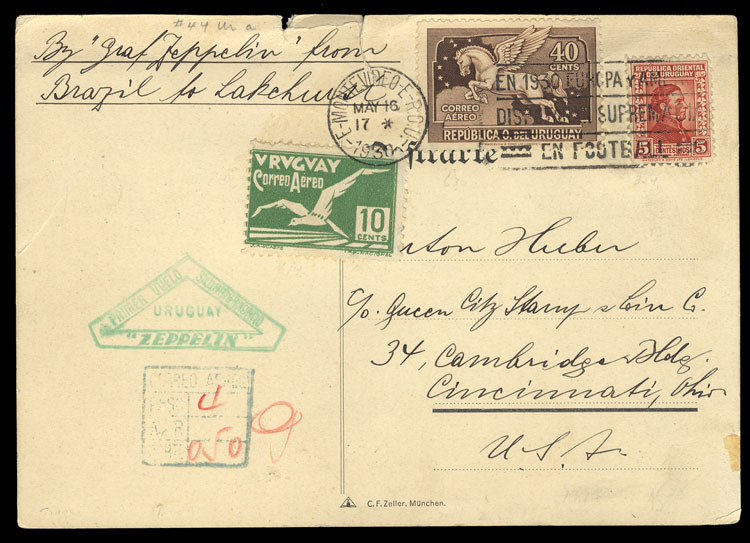 #44 
By "Graf Zeppelin" from
Brazil to Lakehurst
MONTEVIDEO-R.O.U.
MAY 16
17 *
1930
40
CENTS
CORREO
AÉREO
REPUBLICA O. DEL URUGUAY
REPÚBLICA ORIENTAL
DEL URUGUAY
5 CENTESIMOS 5
EN 1930 EUROPA Y AME
DIS SUPREMACIA
EN FOOTBALL
VRVGVAY
Correo Aereo
10
CENTS
Huber
c/o Queen City Stamp & Coin C.
34, Cambridge Bldg.
Cincinnati, Ohio
U.S.A.
PRIMER VUELO
URUGUAY
"ZEPPELIN"
CORREO AEREO
4
050
9
C. F. Zeller. München.